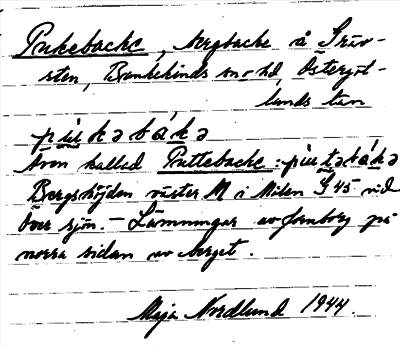 Pukebacke, bergbacke å Sriv-
sten, Bankekinds sn o hd Östergöt-
lands län
pụ̄kəbákə
Även kallad Puttebacke: pụtəbákə
Bergshöjden väster M i Milen S 45 vid
Över sjön. – Lämningar av fornborg på
norra sidan av berget.
Maja Nordlund 1944.